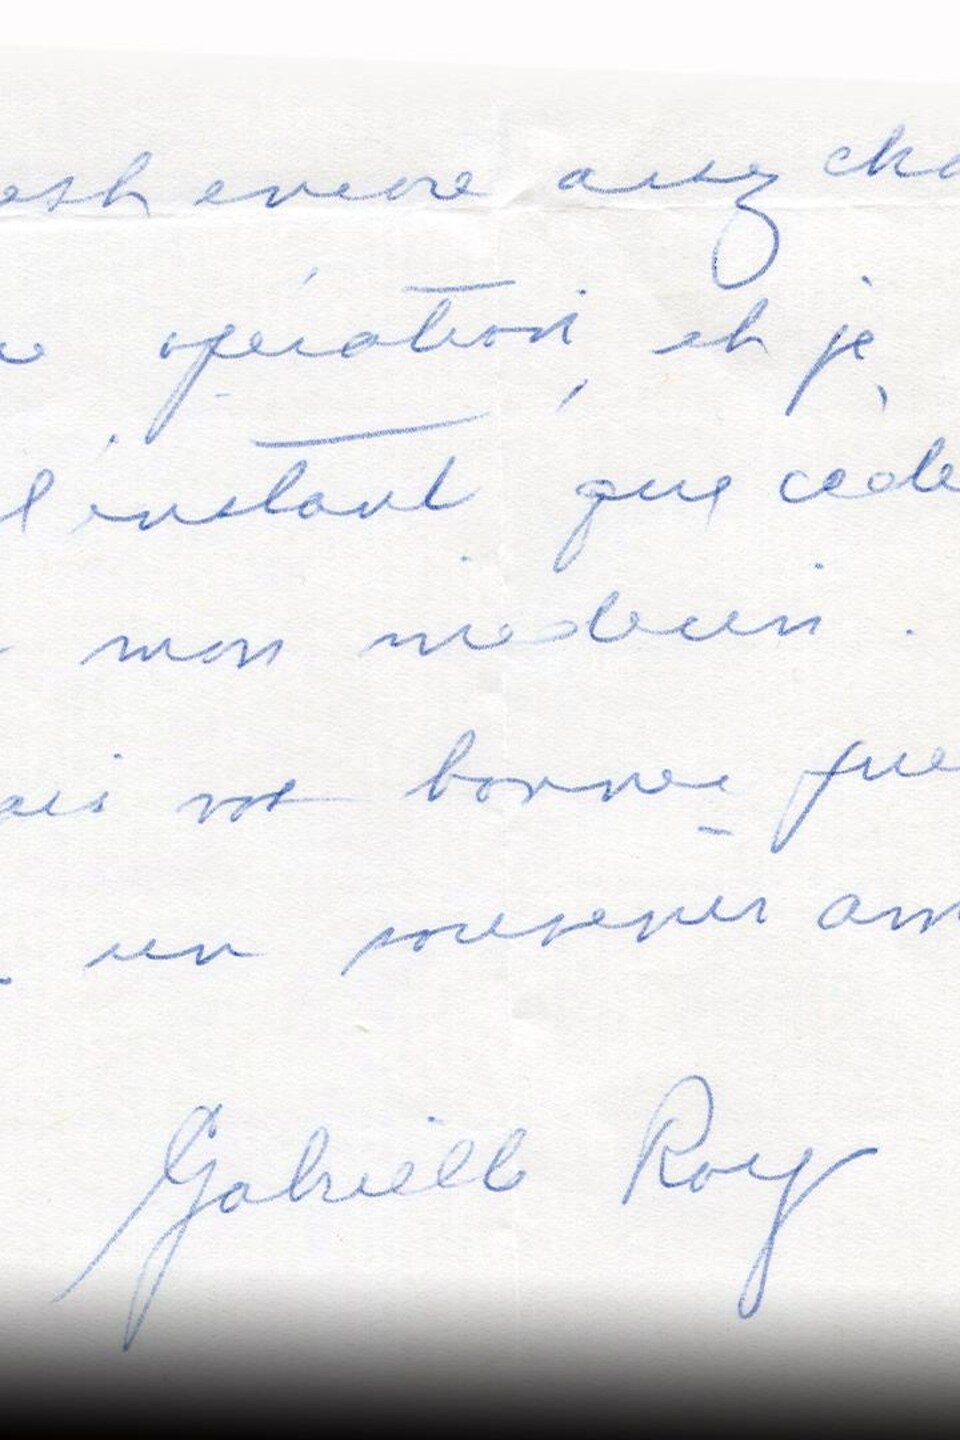 est encore assez cha
opération, et je
l'instant que céde
mon médecin.
ais vot bonne
un souvenir am
Gabrielle Roy